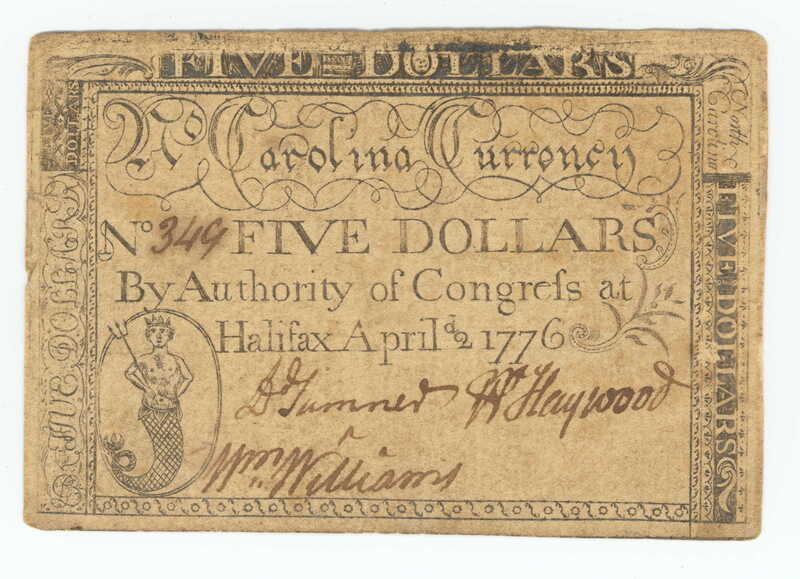 FIVE DOLLARS
No Carolina Currency
No 349 FIVE DOLLARS
By Authority of Congreſs at
Halifax April 2d 1776
Dd Sumner Wm Haywood
Wm Williams
FIVE DOLLARS
FIVE DOLLARS
North Carolina Currency
FIVE DOLLARS